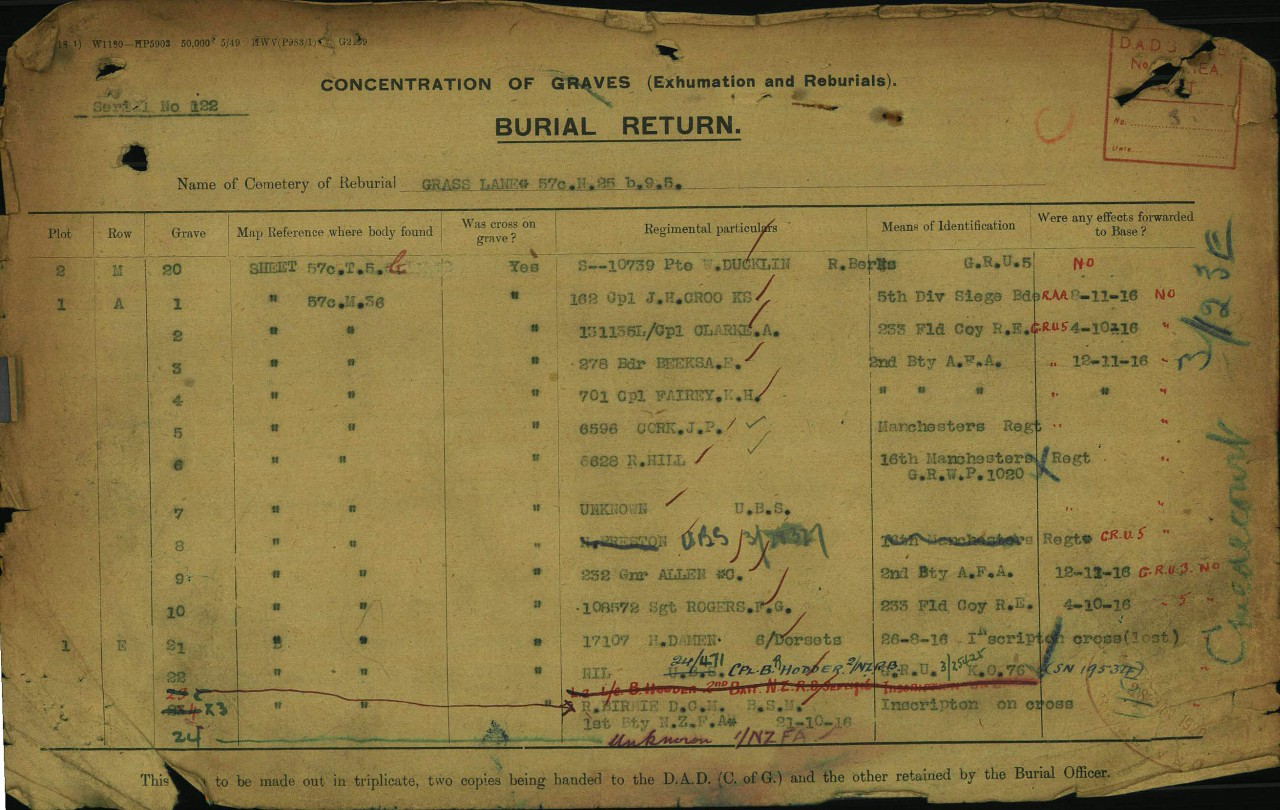 W1180—MP5903 50,000 5/49
CONCENTRATION OF GRAVES (Exhumation and Reburials).
Serial No 122
BURIAL RETURN.
Name of Cemetery of Reburial GRASS LANE 57c.N.25 b.9.5.
Plot Row Grave Map Reference where body found Was cross on grave? Regimental particulars Means of Identification Were any effects forwarded to Base?
2 M 20 SHEET 57c.T.5. Yes S--10739 Pte W.DUCKLIN R.Berks G.R.U.5 NO
1 A 1 " 57c.M.36 " 162 Cpl J.H.CROO KS 5th Div Siege Bde RAA 8-11-16 NO
2 " " " 131135L/Cpl CLARKE.A. 233 Fld Coy R.E. G.R.U5 4-10-16 "
3 " " " 278 Bdr BEEKSA.E. 2nd Bty A.F.A. " 12-11-16 "
4 " " " 701 Cpl FAIREY.K.H. " " " " " "
5 " " " 6596 CORK.J.P. Manchesters Regt " "
6 " " " 6628 R.HILL 16th Manchesters Regt "
G.R.W.P.1020
7 " " " UNKNOWN U.B.S. " "
8 " " " PRESTON UBS 16th Manchesters Regt G.R.U.5 "
9 " " " 232 Gnr ALLEN C. 2nd Bty A.F.A. 12-11-16 G.R.U.3. NO
10 " " " 108572 Sgt ROGERS.F.G. 233 Fld Coy R.E. 4-10-16 " 5 "
1 E 21 " " " 17107 H.DAMEN 6/Dorsets 26-8-16 Inscripton cross(lost)
22 " " " NIL U.B.S. 24/471 CPL B. HODDER. 2/NZRB. G.R.U. 3/25425 K.O.76 (SN 19537E) "
B HODDER 2ND BATT. N.Z.R.B. INSCRIPTION
23 " " " R.BIRNIE D.C.M. B.S.M. Inscripton on cross
1st Bty N.Z.F.A 21-10-16
24 Unknown 1/NZFA
This to be made out in triplicate, two copies being handed to the D.A.D. (C. of G.) and the other retained by the Burial Officer.